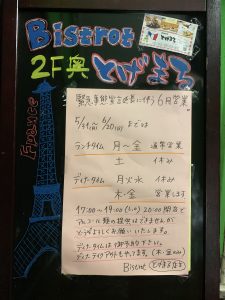 Bistrot
2F奥 とげまる
France
緊急事態宣言延長に伴う6月営業
5/31(月)~6/20(日)までは
ランチタイム 月~金 通常営業
土 休み
ディナータイム 月火水 休み
木・金 営業します
17:00~19:00(L.O) 20:00閉店で
アルコール類の提供はできませんが
どうぞよろしくお願いいたします。
ディナータイムは御予約下さい。
ディナーテイクアウトもやってます。(木・金のみ)
Bistrot とげまる店主